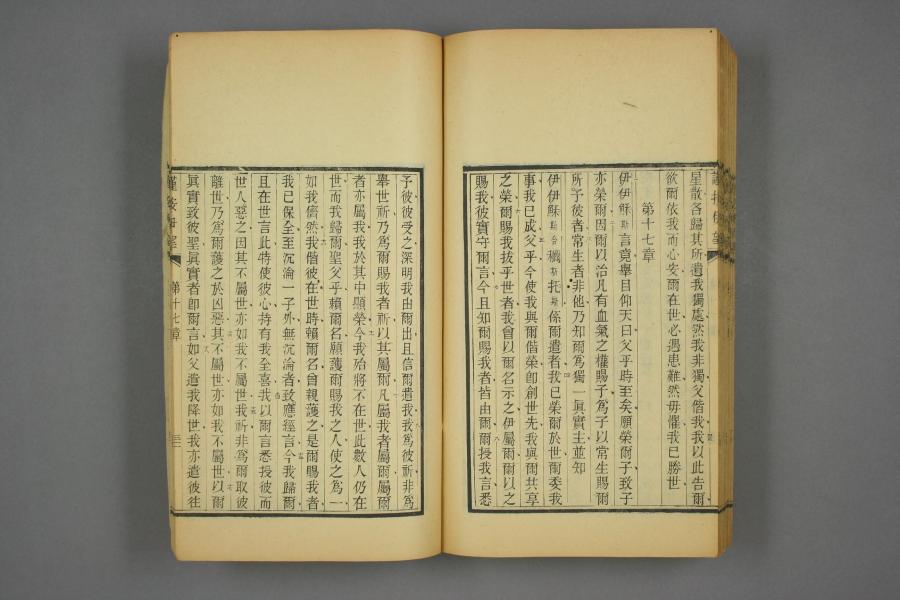 星散各歸其所遺我獨處然我非獨父偕我我以此告爾
欲爾依我而心安爾在世必遇患難然毋懼我已勝世
第十七章
伊伊穌斯言竟舉目仰天曰父乎時至矣願榮爾子致子
亦榮爾因爾以治凡有血氣之權賜子爲子以常生賜爾
所予彼者常生者非他乃知爾爲獨一眞實主並知
伊伊穌斯合穖斯托斯係爾遣者我已榮爾於世爾委我
事我已成父乎今使我與爾偕榮卽創世先我與爾共享
之榮爾賜我拔乎世者我曾以爾名示之伊屬爾爾以之
賜我彼實守爾言今且知爾賜我者皆由爾爾授我言悉
予彼彼受之深明我由爾出且信爾遣我我爲彼祈非爲
舉世祈乃爲爾賜我者祈以其屬爾凡屬我者屬爾屬爾
者亦屬我我於其中顯榮今我殆將不在世此數人仍在
世而我歸爾聖父乎賴爾名願護爾賜我之人使之爲一
如我儕然我偕彼在世時賴爾名曾親護之是爾賜我者
我已保全至沉淪一子外無沉淪者致應經言今我歸爾
且在世言此特使彼心持有我全喜我以爾言悉授彼而
世人惡之因其不屬世亦如我不屬世我祈非爲爾取彼
離世乃爲爾護之於凶惡其不屬世亦如我不屬世以爾
眞實致彼聖眞實者卽爾言如父遣我降世我亦遣彼往
第十七章